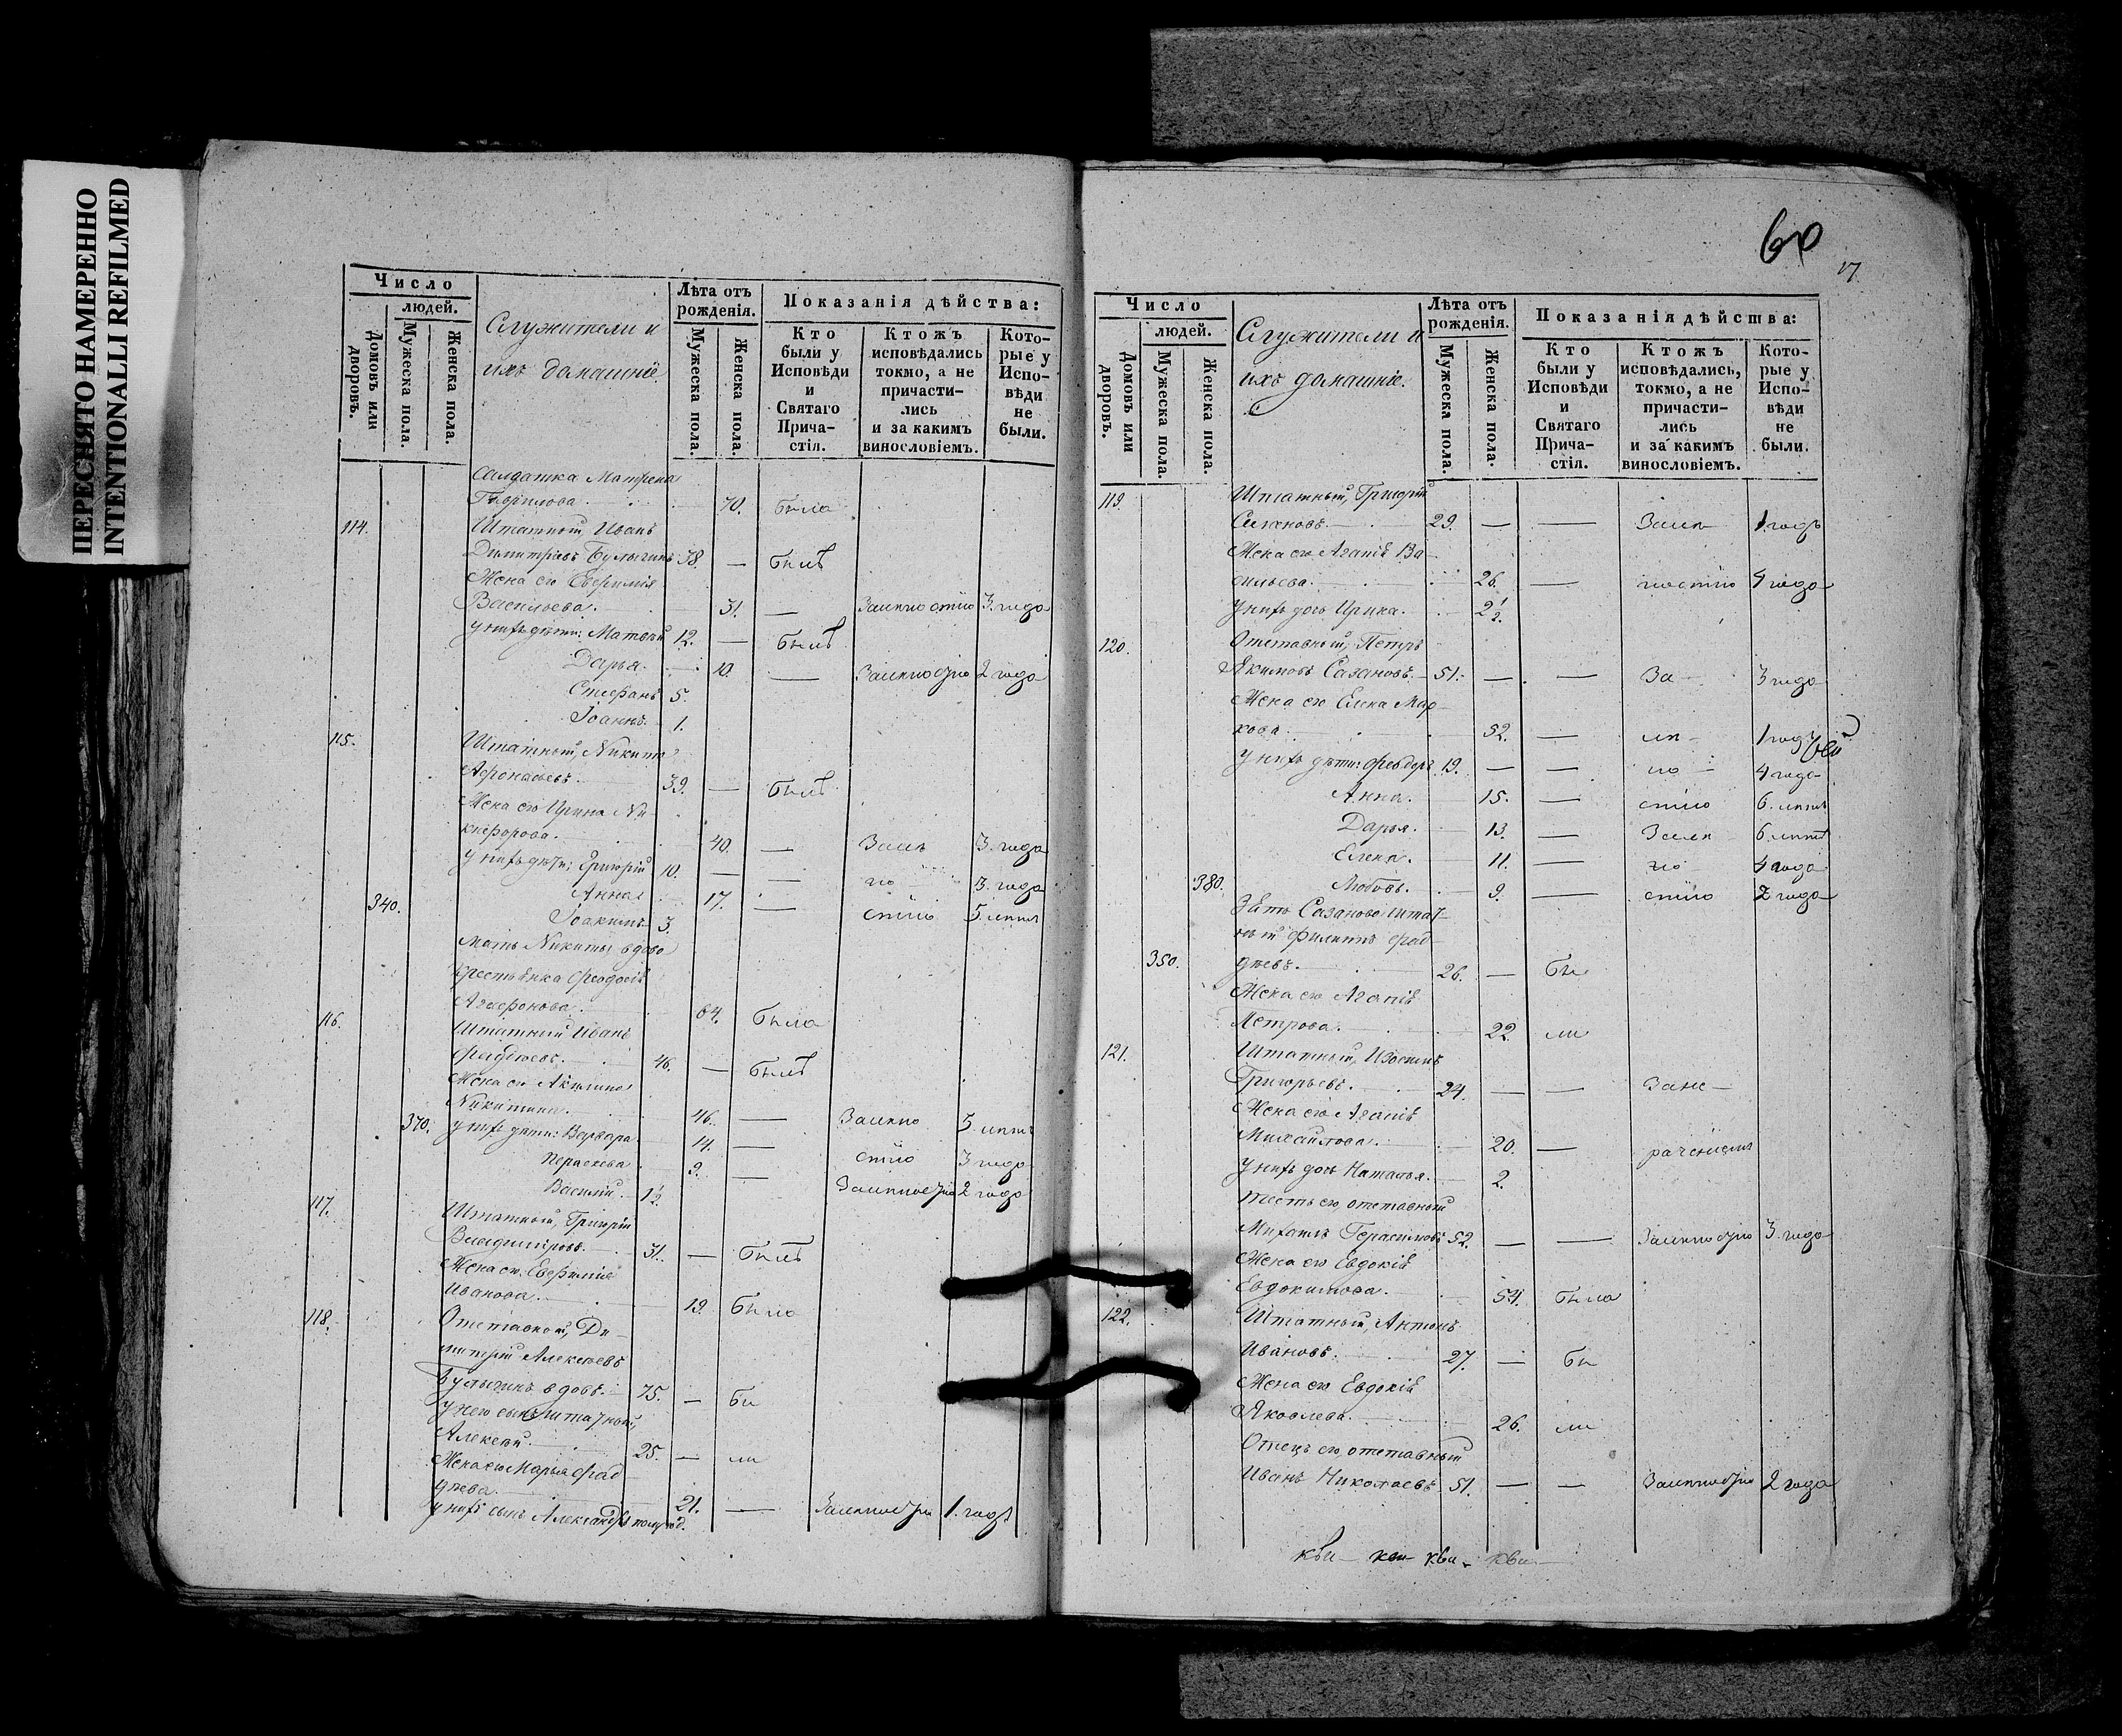 ПЕРЕСНЯТО НАМЕРЕННО
INTENTIONALLI REFILMED
Число
людей.
Домовъ или дворовъ.
Мужеска пола.
Женска пола.
Служители и
ихъ домашніе.
Лѣта отъ
рожденія.
Мужеска пола.
Женска пола.
Показанія дѣйства:
Кто
были у
Исповѣди
и
Святаго
Прича-
стія.
Ктожъ
исповѣдались
токмо, а не
причасти-
лись
и за какимъ
винословіемъ.
Кото-
рые у
Испо-
вѣди
не
были.
Салдатка Матрена
Гаврилова. 70. была
114. Штатный, Иванъ
Димитріевъ Булыгинъ 38. — былъ
Жена его Евфимія
Васильева. 31. — 3. года
у нихъ дѣти: Матвѣй 12. — былъ
Дарья. 10. — 2 года
Стефанъ 5.
Іоаннъ. 1.
115. Штатный, Никита
Афонасьевъ. 39. — былъ
Жена его Ирина Ни-
кифорова. 40. — 3. года
у нихъ дѣти: Григорій 10. — — 3. года
Анна 17. — стію 5. лѣтъ
340. Іоакимъ 3.
Мать Никиты вдова
крестьянка Феодосія
Агафонова. 64. была
116. Штатный Иванъ
Фаддѣевъ. 46. — былъ
Жена его Акилина
Никитина. 46. —
370. у нихъ дѣти: Варвара 14. —
Параскева 9. — 3 года
Василій. 1½. 2 года
117. Штатный, Григорій
Владиміровъ. 31. — былъ
Жена его Евфимія
Иванова. 19. была
118. Отставной, Ди-
митрій Алексѣевъ
Булыгинъ вдовъ. 75. — бы
у него сынъ штатный,
Алексѣй. 25. — ли
Жена его Марья Фад-
дѣева. 21. — 1. годъ
у нихъ сынъ Александръ
60
17
Число
людей.
Домовъ или дворовъ.
Мужеска пола.
Женска пола.
Служители и
ихъ домашніе.
Лѣта отъ
рожденія.
Мужеска пола.
Женска пола.
Показанія дѣйства:
Кто
были у
Исповѣди
и
Святаго
Прича-
стія.
Ктожъ
исповѣдались,
токмо, а не
причасти-
лись
и за какимъ
винословіемъ.
Кото-
рые у
Испо-
вѣди
не
были.
119. Штатный, Григорій
29. — — 1 годъ
Жена его Агапія Ва-
сильева. 26. — 4 года
у нихъ дочь Ирина. 2½.
120. Отставный, Петръ
Якимовъ Сазановъ. 51. — — За 3 года
Жена его Елена Мар-
кова. 52. — 1 годъ
у нихъ дѣти: Феодоръ 19. — — по 4 года
Анна. 15. — стію 6. лѣтъ
Дарья. 13. — 6 лѣтъ
Елена. 11. — по 4 года
380. Любовь. 9. — стію 2 года
Зять Сазанова штат-
ный Филиппъ Фад-
350. дѣевъ. 26. — бы
Жена его Агапія
Петрова. 22. ли
121. Штатный,
Григорьевъ. 24. — —
Жена его Агапія
Михайлова. 20. — раченіемъ
у нихъ дочь Наталья. 2.
Тесть его, отставный
Михаилъ Герасимовъ 52. — — 3. года
Жена его Евдокія
Евдокимова. 54. была
122. Штатный, Антонъ
Ивановъ. 27. — бы
Жена его Евдокія
Яковлева. 26. ли
Отецъ его отставный
Иванъ Николаевъ 51. — — 2 года